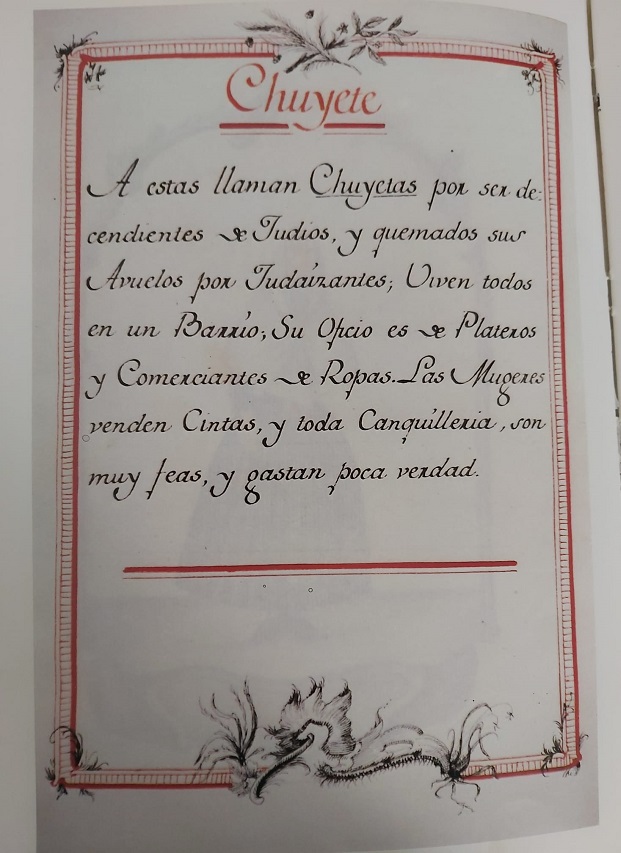 Chuyete
A estas llaman Chuyetas por ser de:
cendientes de Judios, y quemados sus
Avuelos por Judaízantes; Viven todos
en un Barrío; Su Oficio es de Plateros
y Comerciantes de Ropas. Las Mugeres
venden Cintas, y toda Canquílleria, son
muy feas, y gastan poca verdad.